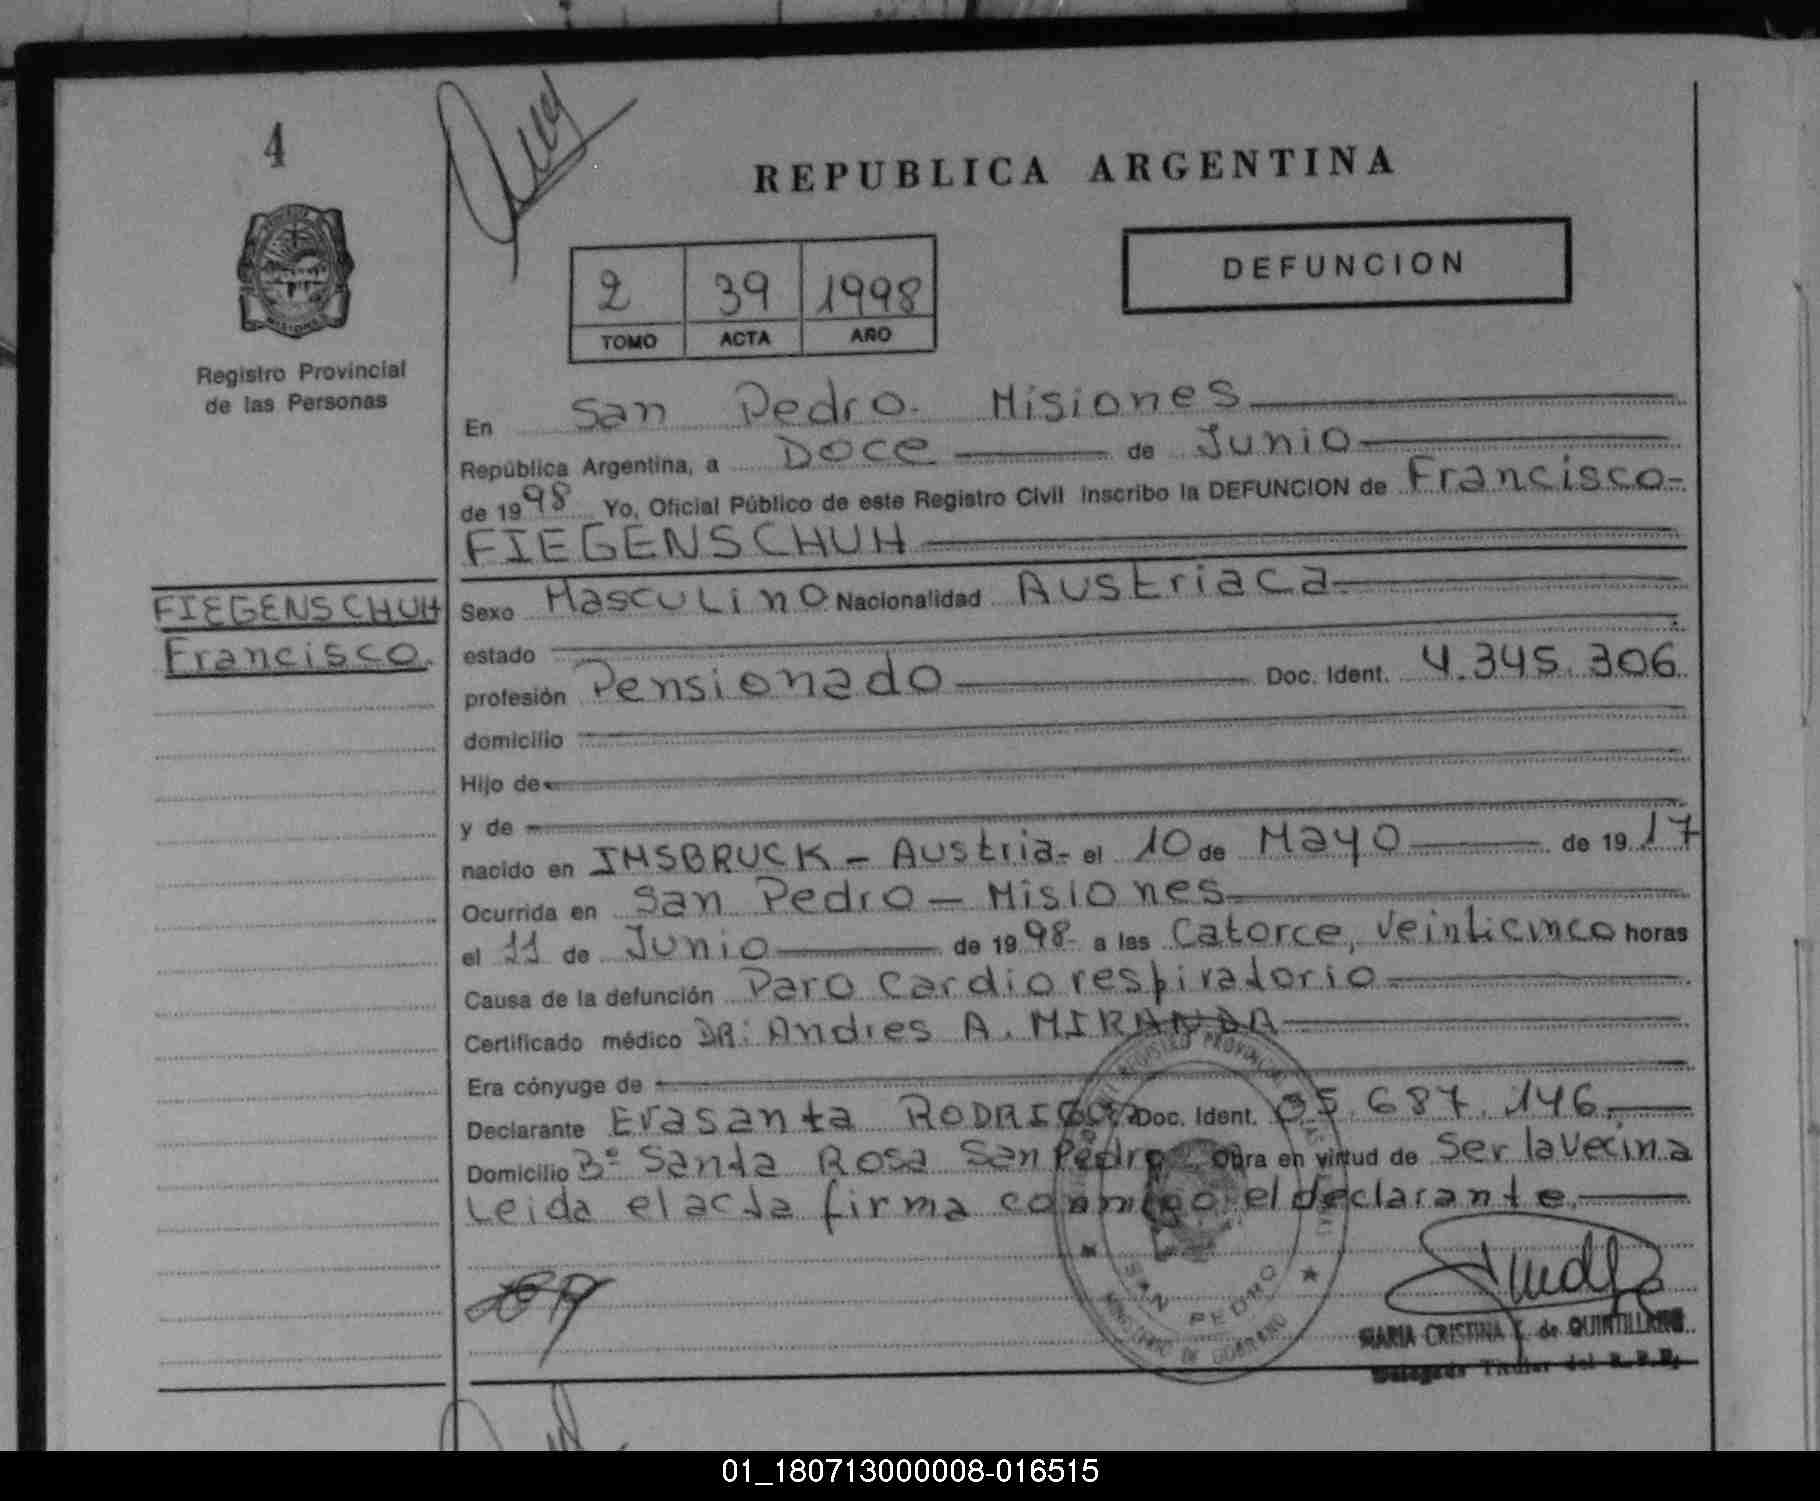 4
REPUBLICA ARGENTINA
DEFUNCION
2 39 1998
TOMO ACTA AÑO
Registro Provincial
de las Personas
En San Pedro. Misiones
República Argentina, a Doce de Junio
de 1998 Yo, Oficial Público de este Registro Civil inscribo la DEFUNCION de Francisco-
FIEGENSCHUH
FIEGENSCHUH
Francisco.
Sexo Masculino Nacionalidad Austriaca
estado
profesión Pensionado Doc. Ident. 4.345.306
domicilio
Hijo de
y de
nacido en IMSBRUCK - Austria- el 10 de Mayo de 1917
Ocurrida en San Pedro - Misiones
el 11 de Junio de 1998 a las Catorce, veinticinco horas
Causa de la defunción Paro Cardiorespiratorio
Certificado médico DR: Andres A. MIRANDA
Era cónyuge de
Declarante Erasanta Doc. Ident. 05.687.146.
Domicilio Bº Santa Rosa San Pedro Obra en virtud de Ser la vecina
Leida el acta firma conmigo el declarante.
SAN PEDRO
MINISTERIO DE GOBIERNO
MARIA CRISTINA de QUINTILLANO
Delegada Titular del R.P.P.
01_180713000008-016515